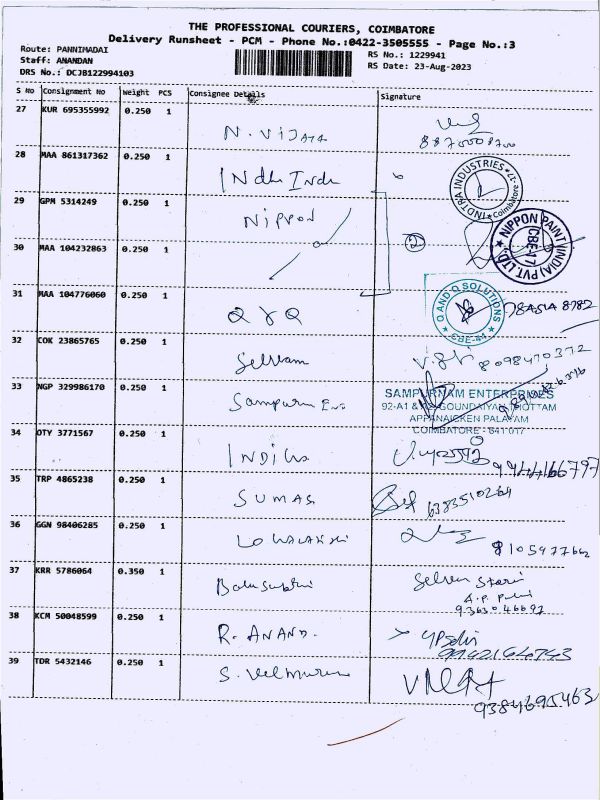 THE PROFESSIONAL COURIERS, COIMBATORE
Delivery Runsheet - PCM - Phone No.:0422-3505555 - Page No.:3
Route: PANNIMADAI
Staff: ANANDAN
DRS No.: DCJB122994103
RS No.: 1229941
RS Date: 23-Aug-2023
S No Consignment No Weight PCS Consignee Details Signature
27 KUR 695355992 0.250 1
N. VIJAYA
28 MAA 861317362 0.250 1
INDTRA INDUSTRIES
Coimbatore-17
29 GPM 5314249 0.250 1
NIPPON
NIPPON PAINT (INDIA) PVT. LTD.
CBE-17
30 MAA 104232863 0.250 1
31 MAA 104776060 0.250 1
Q & Q
Q AND Q SOLUTIONS
CBE-44
32 COK 23865765 0.250 1
Selvam
8098470372
33 NGP 329986170 0.250 1
Sampurn
SAMPURNAM ENTERPRISES
92-A1 THOTTAM
APPANAICKEN PALAYAM
COIMBATORE - 641 017
34 OTY 3771567 0.250 1
9944166797
35 TRP 4865238 0.250 1
SUMAS
6383510264
36 GGN 98406285 0.250 1
37 KRR 5786064 0.350 1
Selven
38 KCM 50048599 0.250 1
R. ANAND.
39 TDR 5432146 0.250 1
S. Velmurugan
9384695463